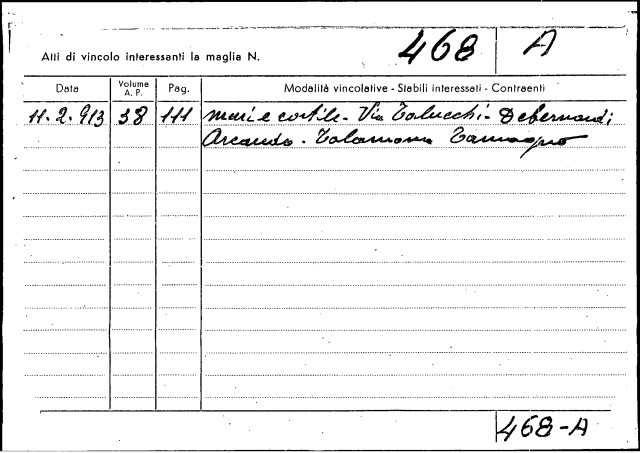 Atti di vincolo interessanti la maglia N. 468 A
Data Volume A. P. Pag. Modalità vincolative - Stabili interessati - Contraenti
11. 2. 913 38 111 muri e cortile - Via Talucchi - Debernardi
Tamagno
468-A